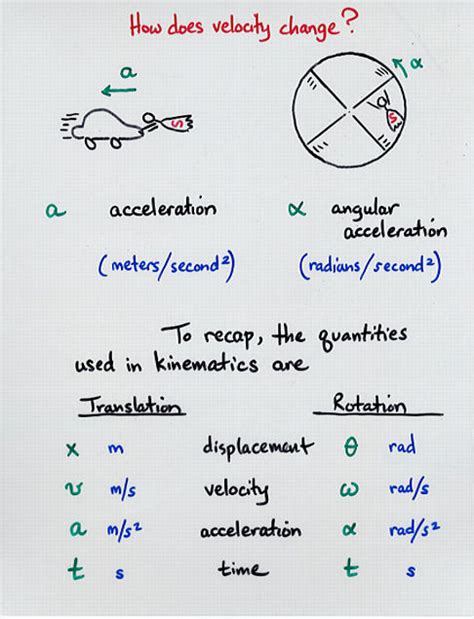 How does velocity change?
a
α
S
S
a acceleration
α angular
acceleration
(meters/second²)
(radians/second²)
To recap, the quantities
used in kinematics are
Translation Rotation
x m displacement θ rad
v m/s velocity ω rad/s
a m/s² acceleration α rad/s²
t s time t s